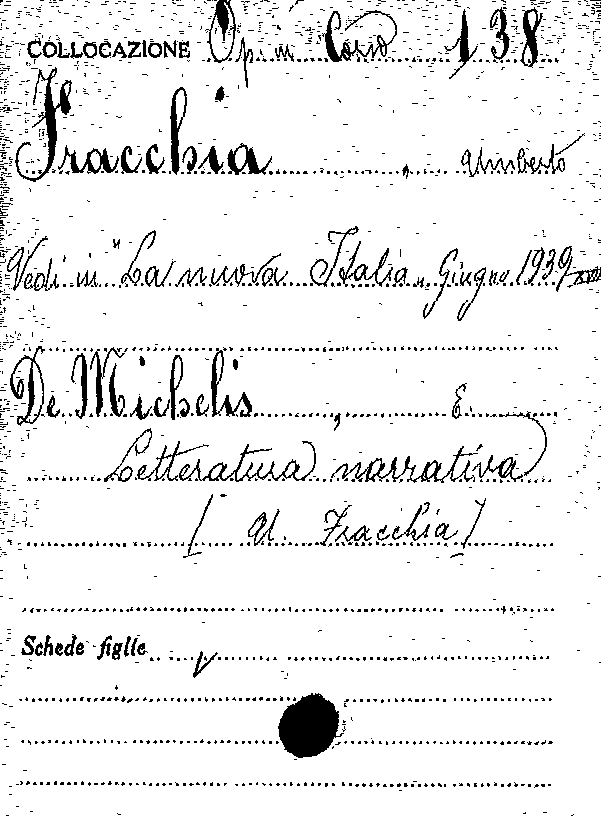 COLLOCAZIONE Op. in Corso 138
Fracchia, Umberto
Vedi in "La nuova Italia" Giugno 1939
De Michelis, E.
Letteratura narrativa
[U. Fracchia]
Schede figlie